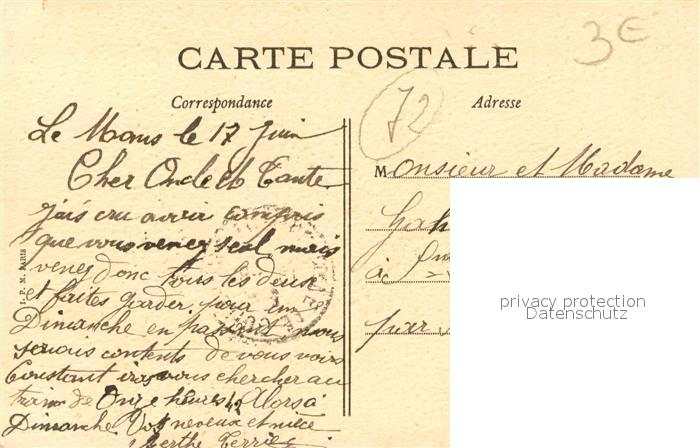 3€
CARTE POSTALE
72
Correspondance
Adresse
Le Mans le 17 Juin
Cher Oncle et Tante
jais cru avoir compris
que vous venez seul mais
venez donc tous les deux
et faites garder pour un
Dimanche en passant nous
serions contents de vous voir
Constant ira vous chercher au
train de Onze heures 1/2 Alors à
Dimanche Vos neveux et nièce
Berthe Terrier
I. P. M. PARIS
Monsieur et Madame
à
par
privacy protection
Datenschutz